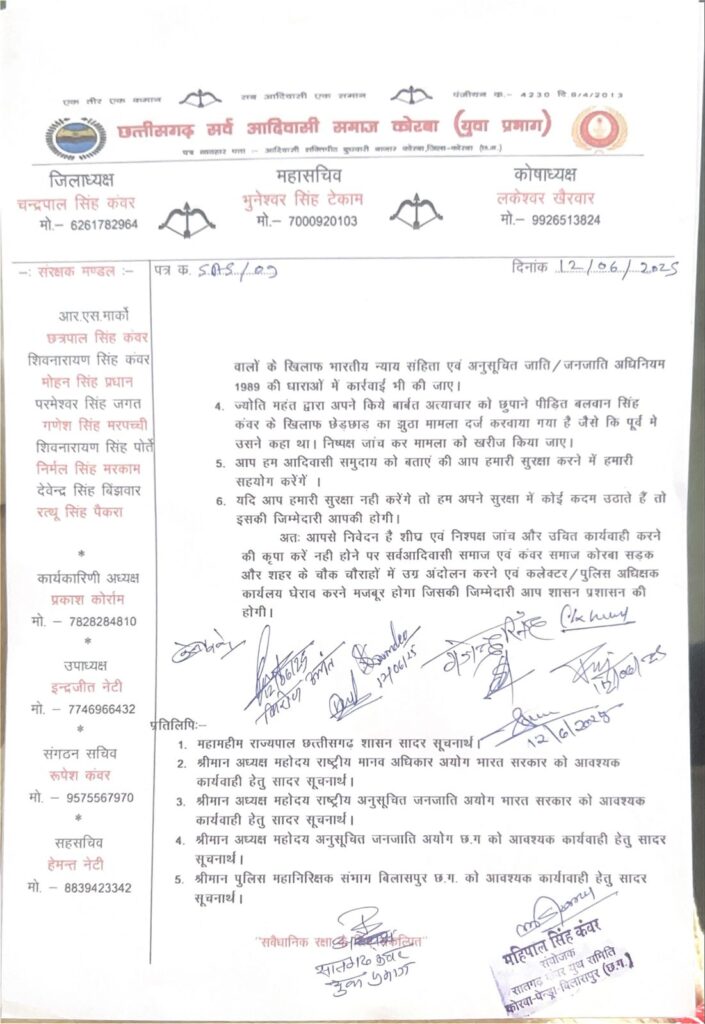 एक तीर एक कमान सब आदिवासी एक समान पंजीयन क.- 4230 दि 8/4/2013
छत्तीसगढ़ सर्व आदिवासी समाज कोरबा (युवा प्रभाग)
पत्र व्यवहार पता :- आदिवासी शक्तिपीठ बुधवारी बाजार कोरबा,जिला-कोरबा (छ.ग.)
जिलाध्यक्ष
चन्द्रपाल सिंह कंवर
मो.- 6261782964
महासचिव
भुनेश्वर सिंह टेकाम
मो.- 7000920103
कोषाध्यक्ष
लकेश्वर खैरवार
मो.- 9926513824
-: संरक्षक मण्डल :-
आर.एस.मार्को
छत्रपाल सिंह कंवर
शिवनारायण सिंह कंवर
मोहन सिंह प्रधान
परमेश्वर सिंह जगत
गणेश सिंह मरपच्ची
शिवनारायण सिंह पोर्ते
निर्मल सिंह मरकाम
देवेन्द्र सिंह बिंझवार
रत्थू सिंह पैकरा
*
कार्यकारिणी अध्यक्ष
प्रकाश कोर्राम
मो. - 7828284810
*
उपाध्यक्ष
इन्द्रजीत नेटी
मो. - 7746966432
*
संगठन सचिव
रूपेश कंवर
मो. - 9575567970
*
सहसचिव
हेमन्त नेटी
मो. - 8839423342
पत्र क. S.A.S/09 दिनांक 12/06/2025
वालों के खिलाफ भारतीय न्याय संहिता एवं अनुसूचित जाति/जनजाति अधिनियम
1989 की धाराओं में कार्रवाई भी की जाए।
4. ज्योति महंत द्वारा अपने किये बार्बत अत्याचार को छुपाने पीड़ित बलवान सिंह
कंवर के खिलाफ छेड़छाड़ का झुठा मामला दर्ज करवाया गया है जैसे कि पूर्व मे
उसने कहा था। निष्पक्ष जांच कर मामला को खरीज किया जाए।
5. आप हम आदिवासी समुदाय को बताएं की आप हमारी सुरक्षा करने में हमारी
सहयोग करेंगें ।
6. यदि आप हमारी सुरक्षा नही करेंगे तो हम अपने सुरक्षा में कोई कदम उठाते हैं तो
इसकी जिम्मेदारी आपकी होगी।
अतः आपसे निवेदन है शीघ्र एवं निश्पक्ष जांच और उचित कार्यवाही करने
की कृपा करें नही होने पर सर्वआदिवासी समाज एवं कंवर समाज कोरबा सड़क
और शहर के चौक चौराहों में उग्र अंदोलन करने एवं कलेक्टर/पुलिस अधिक्षक
कार्यलय घेराव करने मजबूर होगा जिसकी जिम्मेदारी आप शासन प्रशासन की
होगी।
12/06/25
12/06/25
12/06/25
12/6/2025
प्रतिलिपिः-
1. महामहीम राज्यपाल छत्तीसगढ शासन सादर सूचनार्थ।
2. श्रीमान अध्यक्ष महोदय राष्ट्रीय मानव अधिकार अयोग भारत सरकार को आवश्यक
कार्यवाही हेतु सादर सूचनार्थ।
3. श्रीमान अध्यक्ष महोदय राष्ट्रीय अनुसूचित जनजाति अयोग भारत सरकार को आवश्यक
कार्यवाही हेतु सादर सूचनार्थ।
4. श्रीमान अध्यक्ष महोदय अनुसूचित जनजाति अयोग छ.ग को आवश्यक कार्यवाही हेतु सादर
सूचनार्थ।
5. श्रीमान पुलिस महानिरिक्षक संभाग बिलासपुर छ.ग. को आवश्यक कार्यावाही हेतु सादर
सूचनार्थ।
"सवैधानिक रक्षा
सातगढ कंवर
युवा प्रभाग
महिपाल सिंह कंवर
संयोजक
सातगढ़ कंवर युथ समिति
कोरबा-पेन्ड्रा-बिलासपुर (छ.ग.)